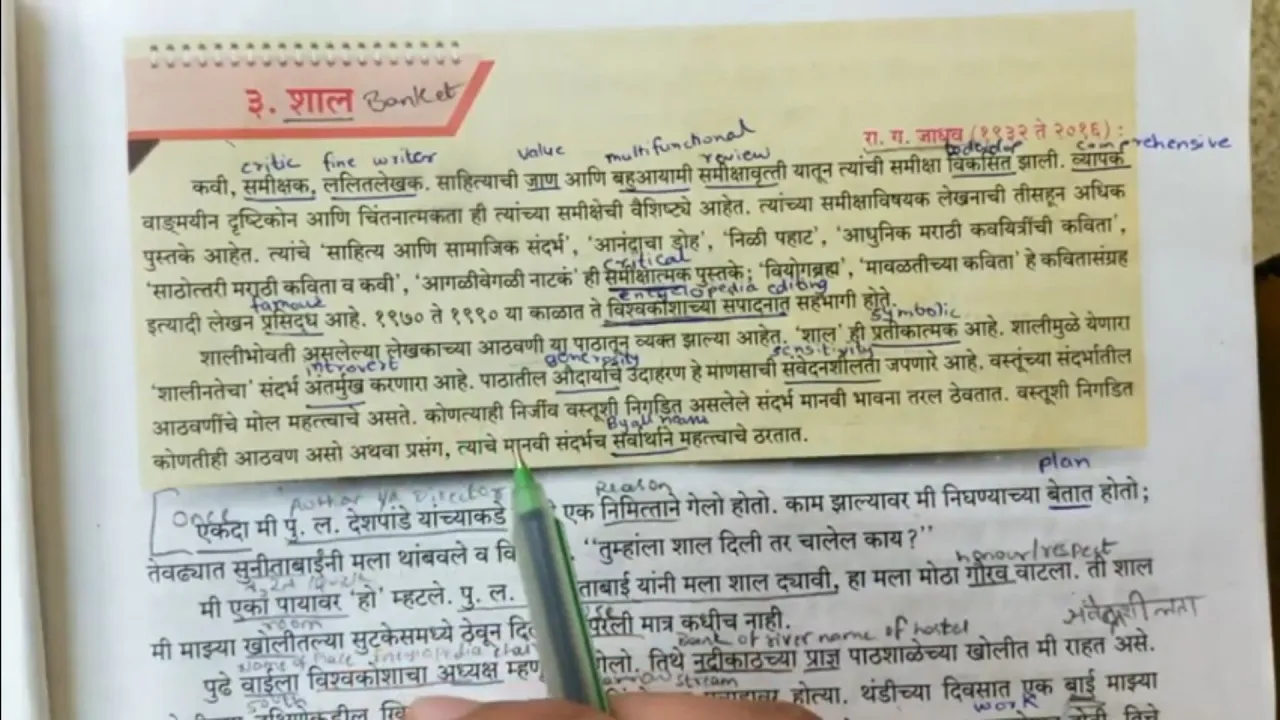 ३. शाल Banket
रा. ग. जाधव (१९३२ ते २०१६) :
critic fine writer value multifunctional review to develop comprehensive
कवी, समीक्षक, ललितलेखक. साहित्याची जाण आणि बहुआयामी समीक्षावृत्ती यातून त्यांची समीक्षा विकसित झाली. व्यापक
वाङ्मयीन दृष्टिकोन आणि चिंतनात्मकता ही त्यांच्या समीक्षेची वैशिष्ट्ये आहेत. त्यांच्या समीक्षाविषयक लेखनाची तीसहून अधिक
पुस्तके आहेत. त्यांचे ‘साहित्य आणि सामाजिक संदर्भ’, ‘आनंदाचा डोह’, ‘निळी पहाट’, ‘आधुनिक मराठी कवयित्रींची कविता’,
critical
‘साठोत्तरी मराठी कविता व कवी’, ‘आगळीवेगळी नाटकं’ ही समीक्षात्मक पुस्तके; ‘वियोगब्रह्म’, ‘मावळतीच्या कविता’ हे कवितासंग्रह
famous encyclopedia editing
इत्यादी लेखन प्रसिद्ध आहे. १९७० ते १९९० या काळात ते विश्वकोशाच्या संपादनात सहभागी होते.
symbolic
शालीभोवती असलेल्या लेखकाच्या आठवणी या पाठातून व्यक्त झाल्या आहेत. ‘शाल’ ही प्रतीकात्मक आहे. शालीमुळे येणारा
introvert generosity sensitivity
‘शालीनतेचा’ संदर्भ अंतर्मुख करणारा आहे. पाठातील औदार्याचे उदाहरण हे माणसाची संवेदनशीलता जपणारे आहे. वस्तूंच्या संदर्भातील
आठवणींचे मोल महत्त्वाचे असते. कोणत्याही निर्जीव वस्तूशी निगडित असलेले संदर्भ मानवी भावना तरल ठेवतात. वस्तूशी निगडित
By all name
कोणतीही आठवण असो अथवा प्रसंग, त्याचे मानवी संदर्भच सर्वार्थाने महत्त्वाचे ठरतात.
Once Author Director reason plan
एकदा मी पु. ल. देशपांडे यांच्याकडे एक निमित्ताने गेलो होतो. काम झाल्यावर मी निघण्याच्या बेतात होतो;
तेवढ्यात सुनीताबाईंनी मला थांबवले व “तुम्हांला शाल दिली तर चालेल काय?”
honour/respect
मी एका पायावर ‘हो’ म्हटले. पु. ल. यांनी मला शाल द्यावी, हा मला मोठा गौरव वाटला. ती शाल
room
मी माझ्या खोलीतल्या सुटकेसमध्ये ठेवून मात्र कधीच नाही.
name of place Bank of river name of hostel
पुढे वाईला विश्वकोशाचा अध्यक्ष गेलो. तिथे नदीकाठच्या प्राज्ञ पाठशाळेच्या खोलीत मी राहत असे.
south stream work
होत्या. थंडीच्या दिवसात एक बाई माझ्या